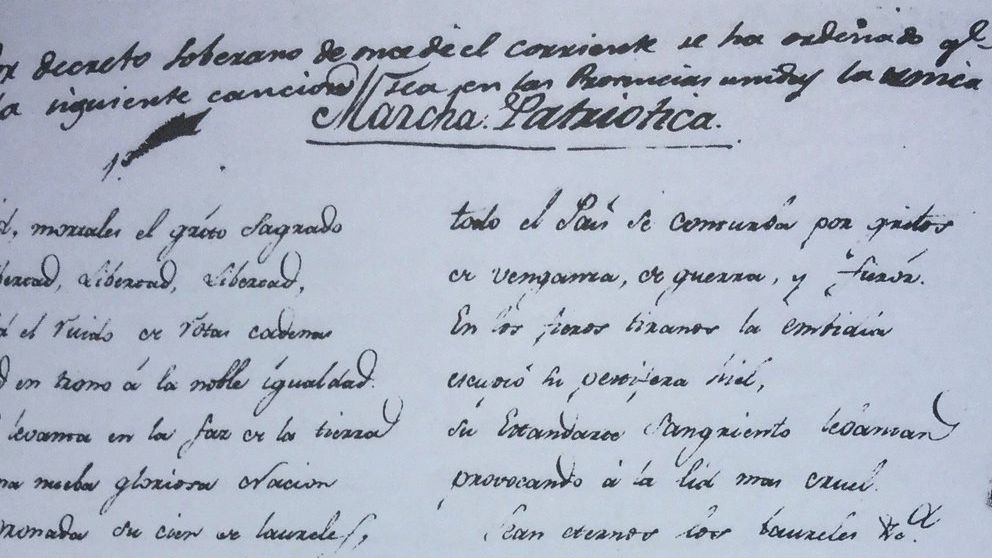 decreto soberano de once del corriente se ha ordenado qe
la siguiente cancion sea en las Provincias unidas la unica
Marcha Patriotica.
1ª
mortales el grito Sagrado
Libertad, Libertad,
el ruido de rotas cadenas
en trono á la noble igualdad.
levanta en la faz de la tierra
nueba gloriosa Nacion
su cien de laureles,
todo el Pais se conturba por gritos
de venganza, de guerra, y furór.
En los fieros tiranos la embidia
escupió su pestifera hiel,
su Estandarte Sangriento levantan
provocando á la lid mas cruel.
Sean eternos los Laureles &c.a